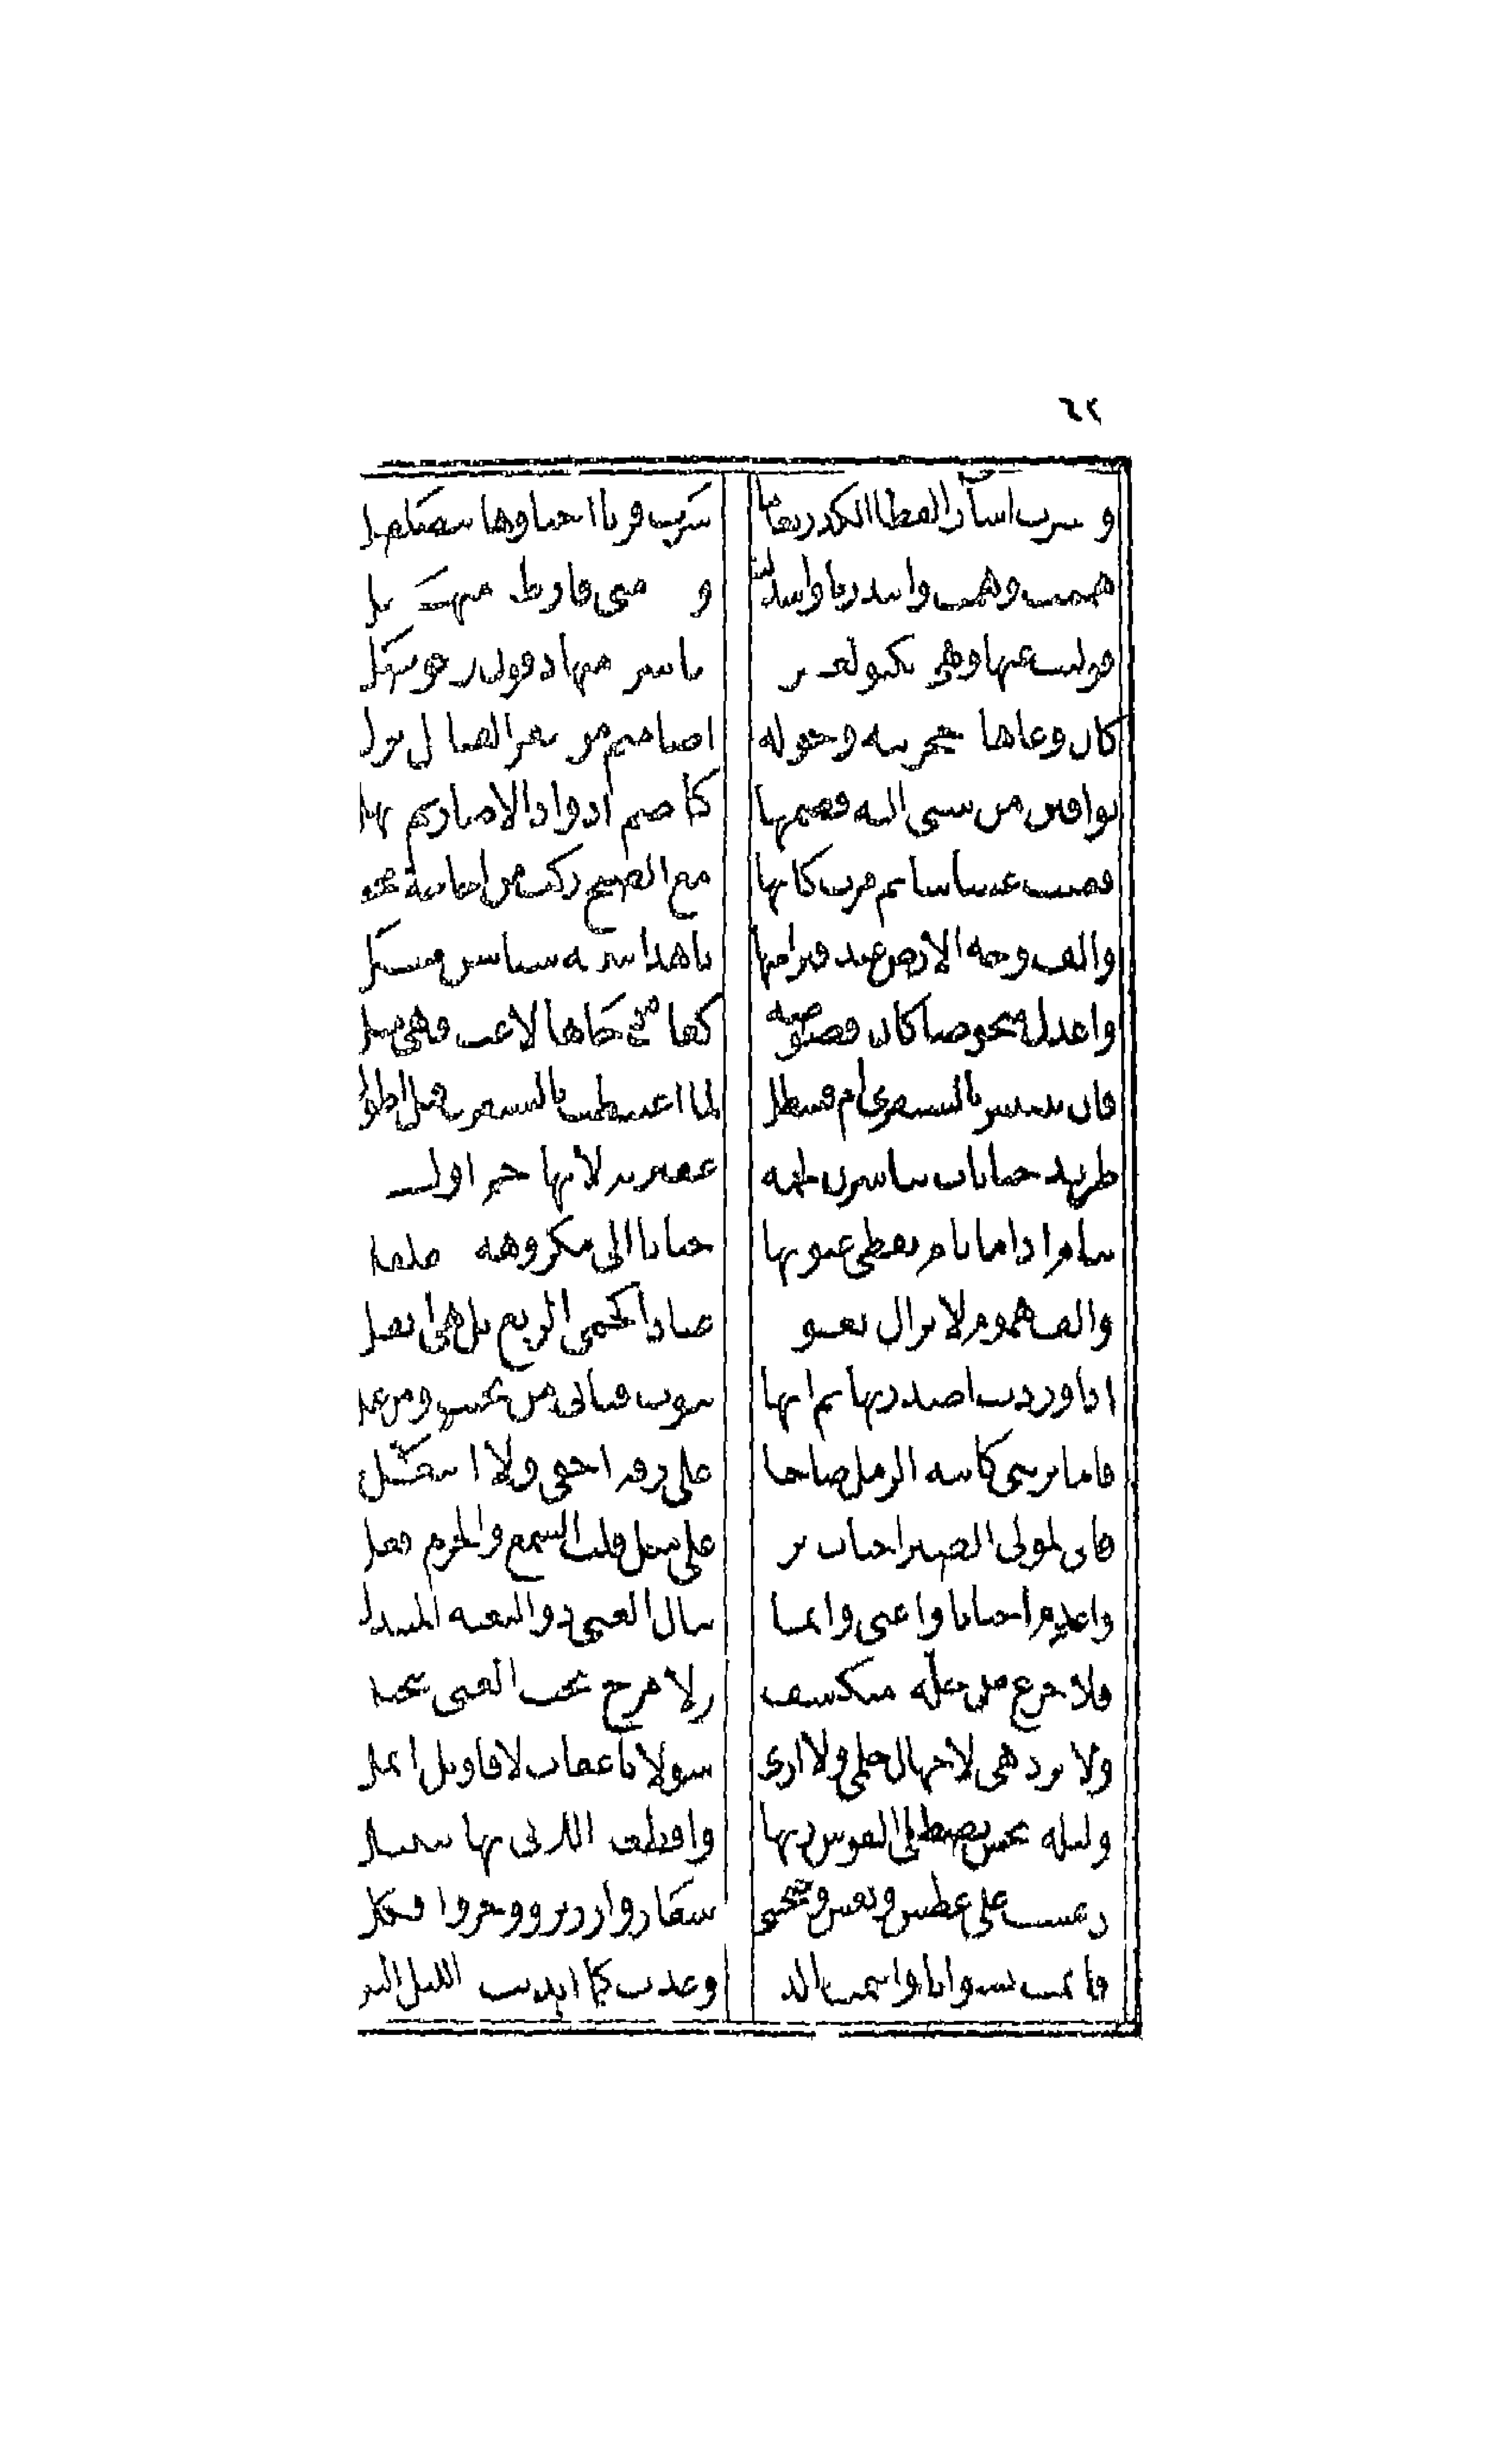 ٦٢
وتشرب اسآر القطا الكدر بعدما سرت قربا احناوها تتصلصل
هممت وهمت وابتدرنا واسدلت و منى فارط متمهل
فوليت عنها وهي تكبو لعقر يباشر منها ذقون وحوصل
كان وغاها حجرتيه وحوله اضاميم من سفر القبائل نزل
توافين من شتى اليه فضمها كما ضم اذواد الاصاريم منهل
فعبت غشاشا ثم مرت كانها مع الصبح ركب من احاظة مجفل
والف وجه الارض عند افتراشها باهدا تنبيه سناسن قحل
واعدل منحوضا كان فصوصه كعاب دحاها لاعب فهي مثل
فان تبتئس بالشنفرى ام قسطل لما اغتبطت بالشنفرى قبل اطول
طريد جنايات تياسرن لحمه عقيرته لايها حم اول
تنام اذا ما نام يقظى عيونها حثاثا الى مكروهه تتغلغل
والف هموم لا تزال تعوده عيادا كحمى الربع بل هي اثقل
اذا وردت اصدرتها ثم انها تثوب فتاتي من تحيت ومن عل
فاما تريني كابنة الرمل ضاحيا على رقة احفى ولا اتنعل
فاني لمولى الصبر اجتاب بزه على مثل قلب السمع والحزم افعل
واعدم احيانا واغنى وانما ينال الغنى ذو البعدة المتبذل
فلا جزع من خلة متكشف ولا مرح تحت الغنى اتخيل
ولا تزدهي الاجهال حلمي ولا ارى سؤلا باعقاب الاقاويل انمل
وليلة نحس يصطلي القوس ربها واقطعه اللاتي بها يتنبل
دعست على غطش وبغش وصحبتي سعار وارزيز ووجر وافكل
فايمت نسوانا وايتمت الدة وعدت كما ابدات والليل اليل